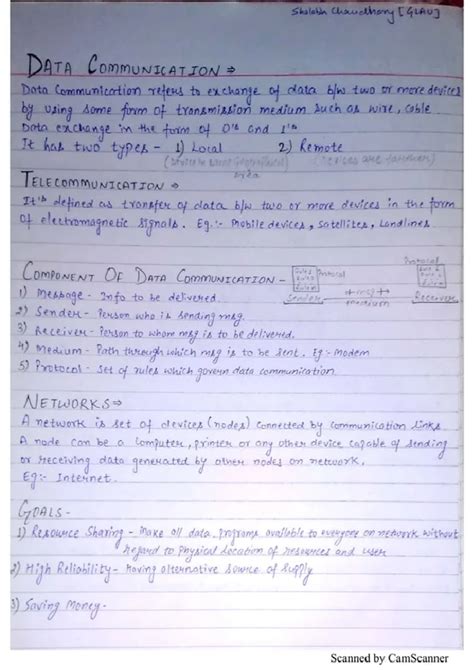 Shalabh Chaudhary [GLAU]
DATA COMMUNICATION ⇒
Data Communication refers to exchange of data b/w two or more devices
by using some form of transmission medium such as wire, cable
Data exchange in the form of 0's and 1's
It has two types - 1) Local 2) Remote
(Devices are farther)
TELECOMMUNICATION ⇒
It's defined as transfer of data b/w two or more devices in the form
of electromagnetic signals. Eg.:- Mobile devices, Satellites, Landlines
COMPONENT OF DATA COMMUNICATION:-
Protocol Protocol
Rule 1 Rule 1
Rule 2 Rule 2
Rule n Rule n
Sender msg medium Receiver
1) Message - Info to be delivered.
2) Sender - Person who is sending msg.
3) Receiver - Person to whom msg is to be delivered.
4) Medium - Path through which msg is to be sent. Eg:- Modem
5) Protocol - Set of rules which govern data communication
NETWORKS ⇒
A network is set of devices (nodes) connected by communication links.
A node can be a computer, printer or any other device capable of sending
or receiving data generated by other nodes on network.
Eg:- Internet.
GOALS -
1) Resource Sharing - Make all data, programs available to everyone on network without
regard to physical location of resources and user
2) High Reliability - having alternative source of supply
3) Saving Money -
Scanned by CamScanner